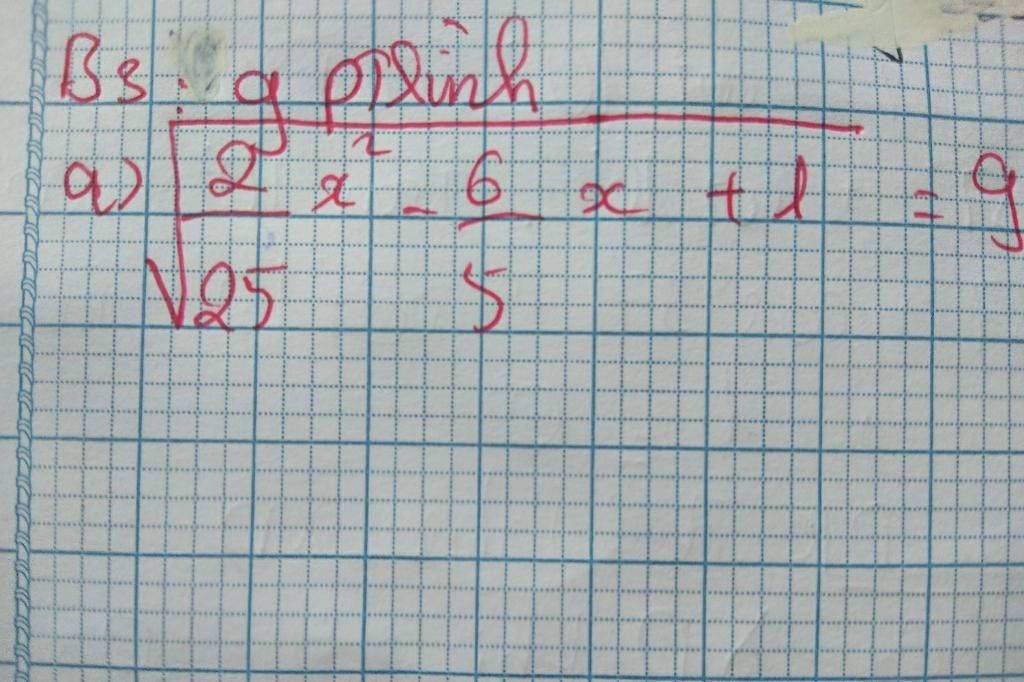 B3: g ptlình
a) √(2/25 x² - 6/5 x + 1) = 9